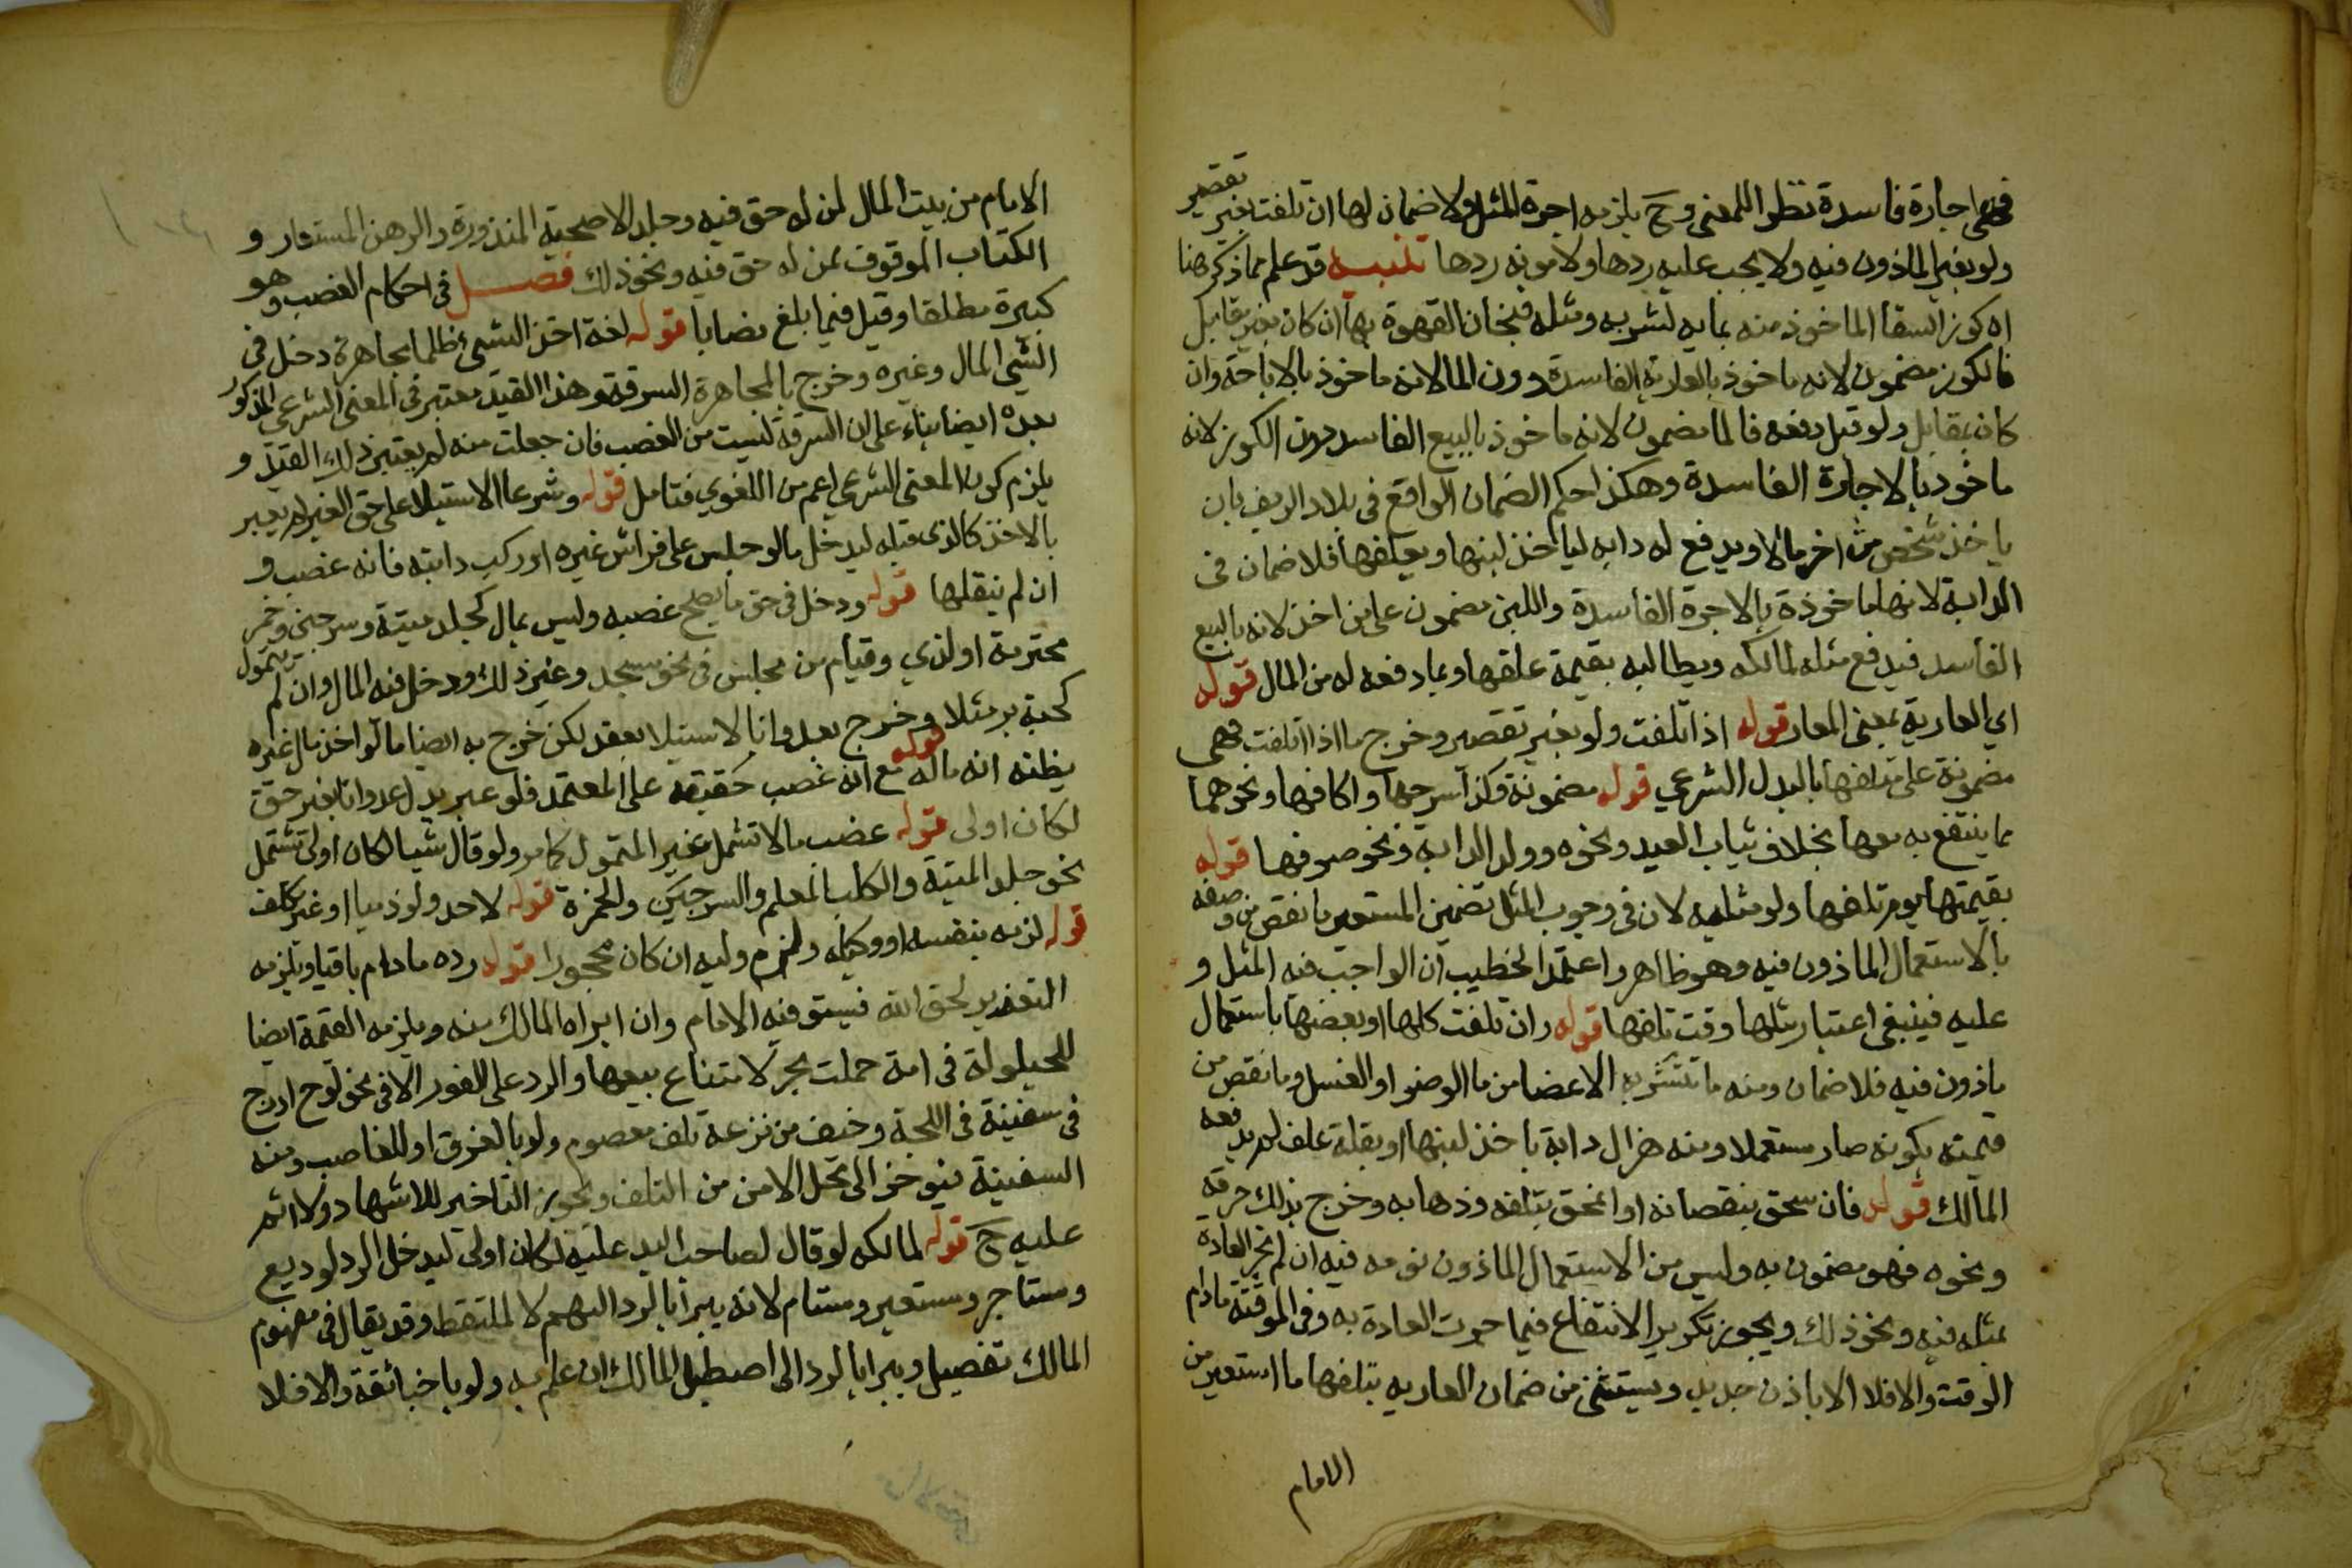 فهي اجارة فاسدة نظرا للمعنى وح يلزمه اجرة المثل ولا ضمان لها ان تلفت بغير تقصير
ولو بغير الماذون فيه ولا يجب عليه ردها ولا مونة ردها تنبيه قد علم مما ذكر هنا
ان كوز السقا الماخوذ منه بمايه لشربه ومثله فنجان القهوة بها ان كان بغير مقابل
فالكوز مضمون لانه ماخوذ بالعارية الفاسدة دون الما لانه ماخوذ بالاباحة وان
كان بمقابل ولو قبل دفعه فالما مضمون لانه ماخوذ بالبيع الفاسد دون الكوز لانه
ماخوذ بالاجارة الفاسدة وهكذا حكم الضمان الواقع في بلاد الريف بان
ياخذ شخص من اخر مالا ويدفع له دابه لياخذ لبنها ويعلفها فلا ضمان في
الدابة لانها ماخوذة بالاجرة الفاسدة واللبن مضمون على من اخذ لانه بالبيع
الفاسد فيدفع مثله لمالكه ويطالبه بقيمة علفها وبما دفعه له من المال قوله
اي العارية بمعنى المعار قوله اذا تلفت ولو بغير تقصير وخرج ما اذا اتلفت فهي
مضمونة على متلفها بالبدل الشرعي قوله مضمونة وكذا سرجها واكافها ونحوهما
مما ينتفع به معها بخلاف ثياب العبد ونحوه وولد الدابة ونحو صوفها قوله
بقيمتها يوم تلفها ولو مثليه لان في وجوب المثل تضمين المستعير ما نقص من وصفه
بالاستعمال الماذون فيه وهو ظاهر واعتمد الخطيب ان الواجب فيه المثل و
عليه فينبغي اعتبار مثلها وقت تلفها قوله وان تلفت كلها او بعضها باستعمال
ماذون فيه فلا ضمان ومنه ما تتشربه الاعضا من ما الوضو او الغسل وما نقص من
قيمته بكونه صار مستعملا ومنه هزال دابة باخذ لبنها او بقلة علف لم يدفعه
المالك قوله فان سحق بنقصانه او انمحق بتلفه وذهابه وخرج بذلك حرقه
ونحوه فهو مضمون به وليس من الاستعمال الماذون نومه فيه ان لم تجر العادة
بمثله فيه ونحو ذلك ويجوز تكرير الانتفاع فيما جرت العادة به وفي الموقتة مادام
الوقت والا فلا الا باذن جديد ويستثنى من ضمان العاريه بتلفها ما استعير من
الامام
الامام من بيت المال لمن له حق فيه وجلد الاضحية المنذورة والرهن المستعار و
الكتاب الموقوف لمن له حق فيه ونحو ذلك فصل في احكام الغصب وهو
كبيرة مطلقا وقيل فيما بلغ نصابا قوله لغة اخذ الشيء ظلما مجاهرة دخل في
الشي المال وغيره وخرج بالمجاهرة السرقة وهذا القيد معتبر في المعنى الشرعي المذكور
بعده ايضا بناء على ان السرقة ليست من الغصب فان جعلت منه لم يعتبر ذلك القيد و
يلزم كون المعنى الشرعي اعم من اللغوي فتامل قوله وشرعا الاستيلا على حق الغير لم يعبر
بالاخذ كالذي قبله ليدخل ما لو جلس على فراش غيره او ركب دابته فانه غصب و
ان لم ينقلها قوله ودخل في حق ما يصح غصبه وليس بمال كجلد ميتة وسرجين وخمر
محترمة او لذي وقيام من مجلس في نحو مسجد وغير ذلك ودخل فيه المال وان لم يتمول
كحبة بر مثلا وخرج بعدوانا الاستيلا بعقد لكن خرج به ايضا ما لو اخذ مال غيره
يظنه انه ماله قوله مع انه غصب حقيقة على المعتمد فلو عبر بدل عدوانا بغير حق
لكان اولى قوله غصب مالا تشمل غير المتمول كما مر ولو قال شيا لكان اولى تشتمل
نحو جلد الميتة والكلب المعلم والسرجين والخمرة قوله لاحد ولو ذميا او غير مكلف
قوله لزمه بنفسه او وكيله ولزم وليه ان كان محجورا قوله رده ما دام باقيا ويلزمه
التعزير لحق الله فيستوفيه الامام وان ابراه المالك منه ويلزمه القيمة ايضا
للحيلولة في امة حملت بحر لامتناع بيعها والرد على الفور الا في نحو لوح ادرج
في سفينة في اللجة وخيف من نزعه تلف معصوم ولو بالغرق او للغاصب ومنه
السفينة فيوخر الى محل الامن من التلف ويجوز التاخير للاشهاد ولا اثم
عليه ح قوله لمالكه لو قال لصاحب اليد عليه لكان اولى ليدخل الرد لوديع
ومستاجر ومستعير ومستام لانه يبرأ بالرد اليهم لا لملتقط وقد يقال في مفهوم
المالك تفصيل ويبرا بالرد الى اصطبل المالك ان علم به ولو باخبار ثقة والا فلا